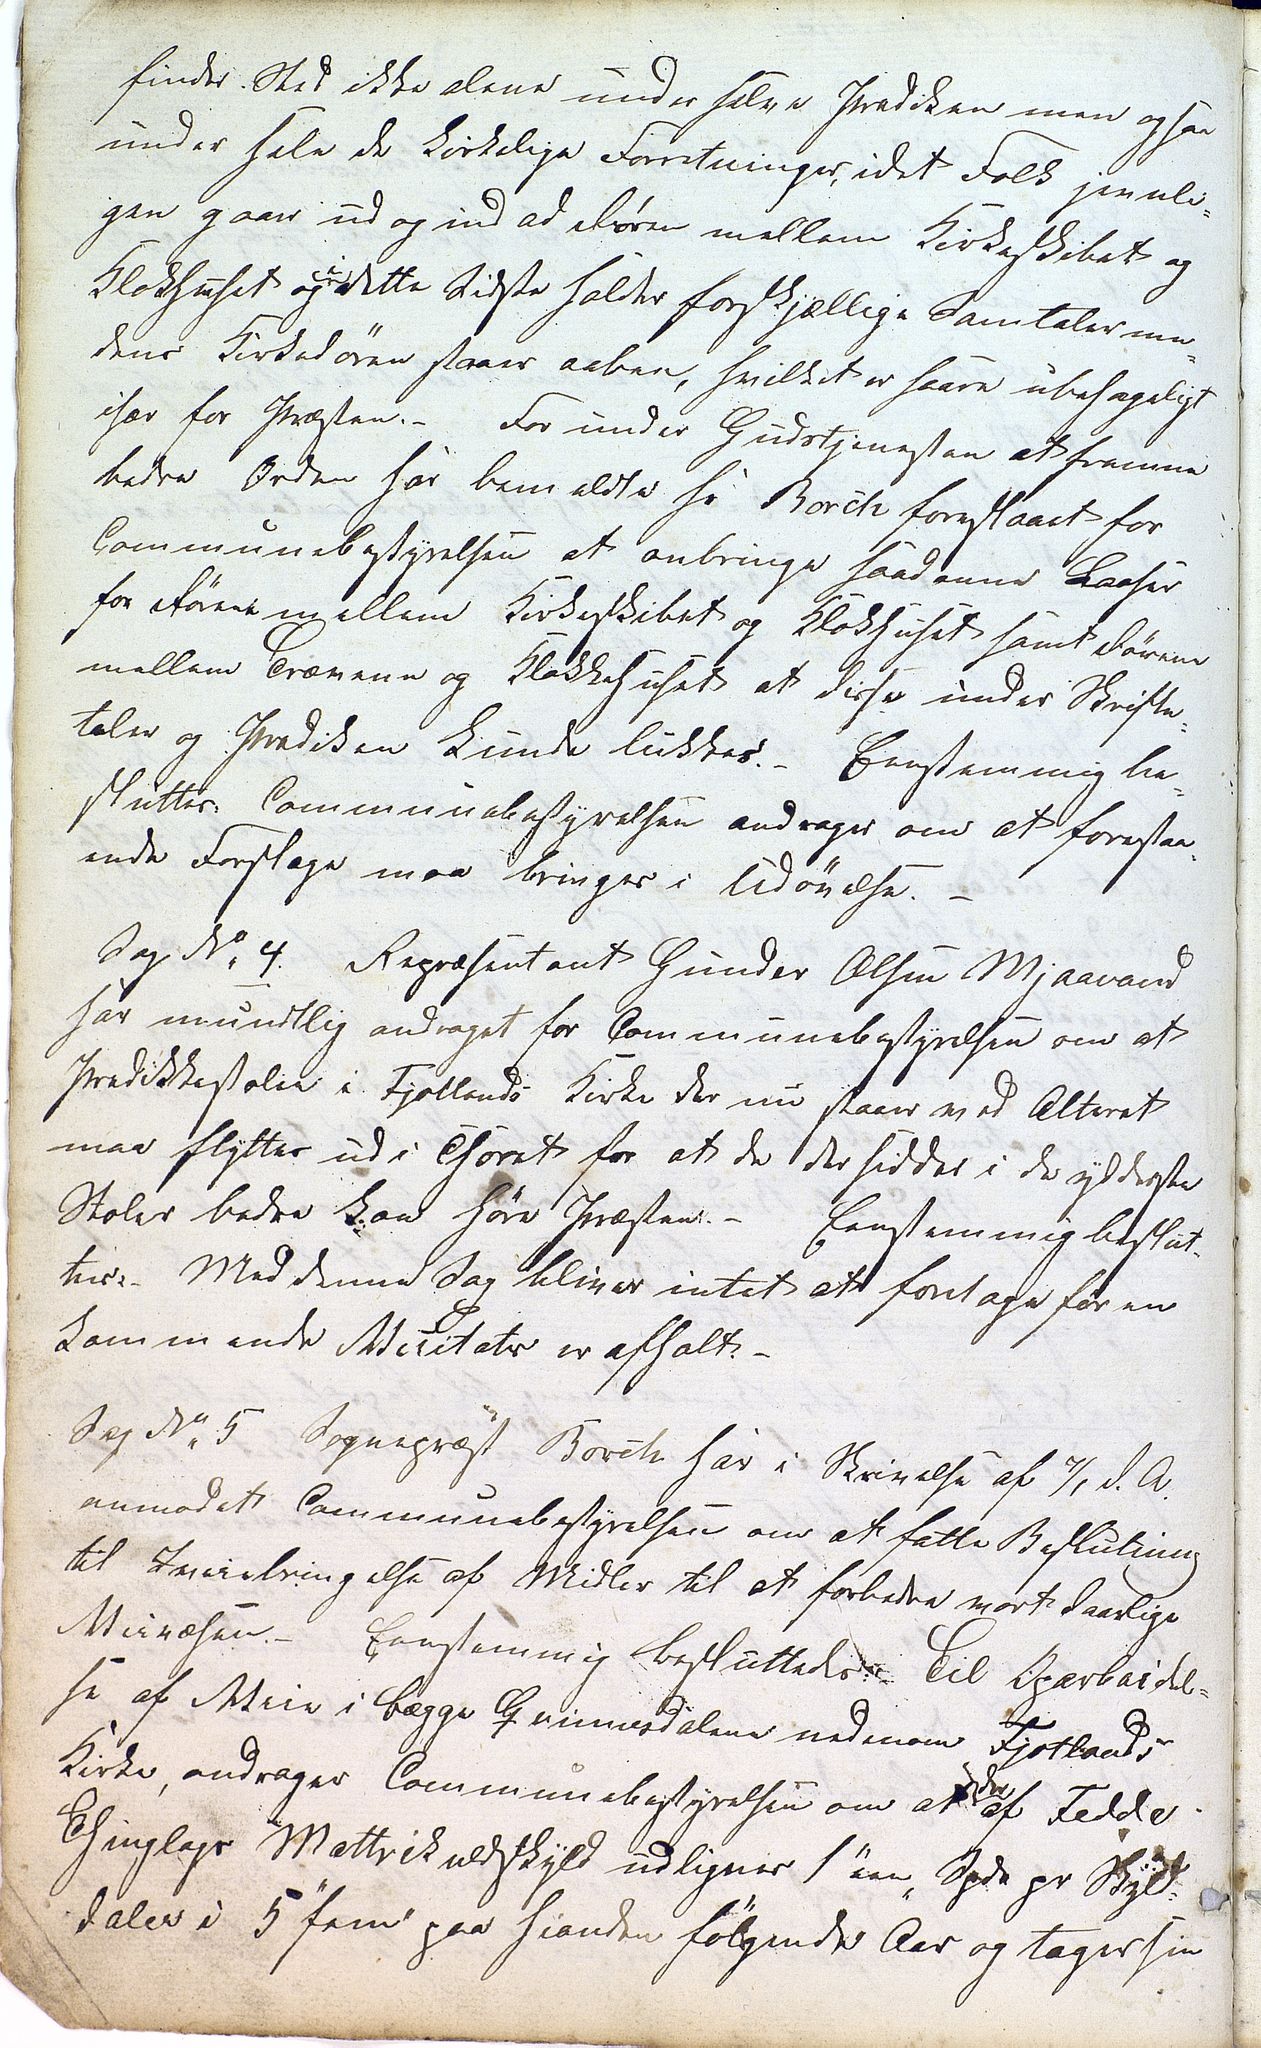 finder Sted ikke alene under selve Prædiken men ogsaa
under hele de kirkelige Forretninger, idet Folk jevnli-
gen gaar ud og ind ad døren mellem Kirkeskibet og
Klokhuset og i dette Sidste holder forskjællige Samtaler me-
dens Kirkedøren staaer aaben, hvilket er saare ubehageligt
især for Præsten.- For under Gudstjenesten at fremme
bedre Orden har bemeldte hr Borch foreslaaet for
Communebestyrelsen at anbringe saadanne Laaser
for dörene mellem Kirkeskibet og Klokhuset samt dörene
mellem Trævene og Klokkehuset at disse under Skrifte-
taler og Prædiken kunde lukkes.- Eenstemmig be-
sluttes: Communebestyrelsen andrager om at forestaa-
ende Forslage maa bringes i Udövelse. -
Sag No 4. Repræsentant Gunder Olsen Mjaavand
har mundtlig andraget for Communebestyrelsen om at
Prædikkestolen i Fjotlands Kirke der nu staar ved Alteret
maa flyttes ud i Choret for at de der sidder i de yderste
Stoler bedre kan höre Præsten.- Eenstemmig beslut-
tes:- Med denne Sag bliver intet at foretage för en
kommende Visitats er afholt.-
Sag No 5 Sognepræst Borch har i Skrivelse af 7/1 d. A.
anmodet Communebestyrelsen om at fatte Beslutning
til Tveiebringelse af Midler til at forbedre vort daarlige
Veivæsen.- Eenstemmig besluttedes:- Til Oparbeidel-
se af Veie i begge Qvinesdalene nedenom Fjotlands
Kirke, andrager Communebestyrelsen om at der af Fedde
Thinglags Mattrikulskyld udlignes 1 "een" Spd pr Skyld-
daler i 5 "fem" paa hianden fölgende Aar og tager sin